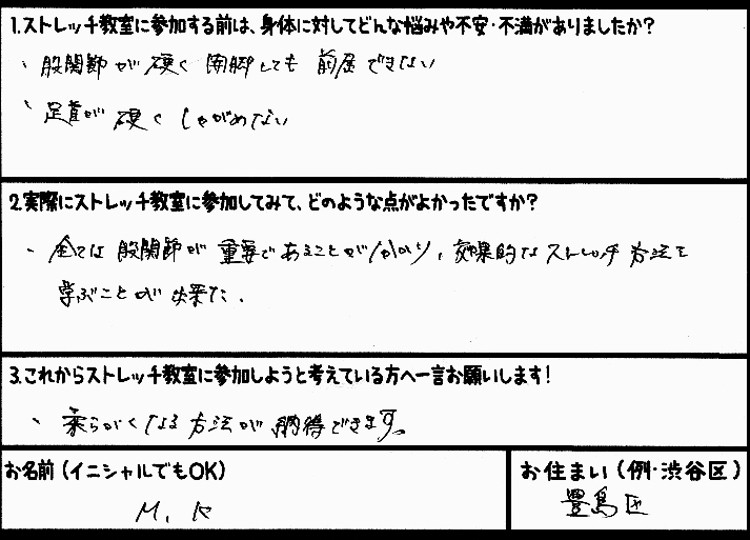 1.ストレッチ教室に参加する前は、身体に対してどんな悩みや不安・不満がありましたか?
、股関節が硬く開脚しても前屈できない
、足首が硬くしゃがめない
2.実際にストレッチ教室に参加してみて、どのような点がよかったですか?
、全ては股関節が重要であることが分かり、効果的なストレッチ方法を
学ぶことが出来た.
3.これからストレッチ教室に参加しようと考えている方へ一言お願いします!
、柔らかくなる方法が納得できます。
お名前(イニシャルでもOK)
M、K
お住まい(例・渋谷区)
豊島区